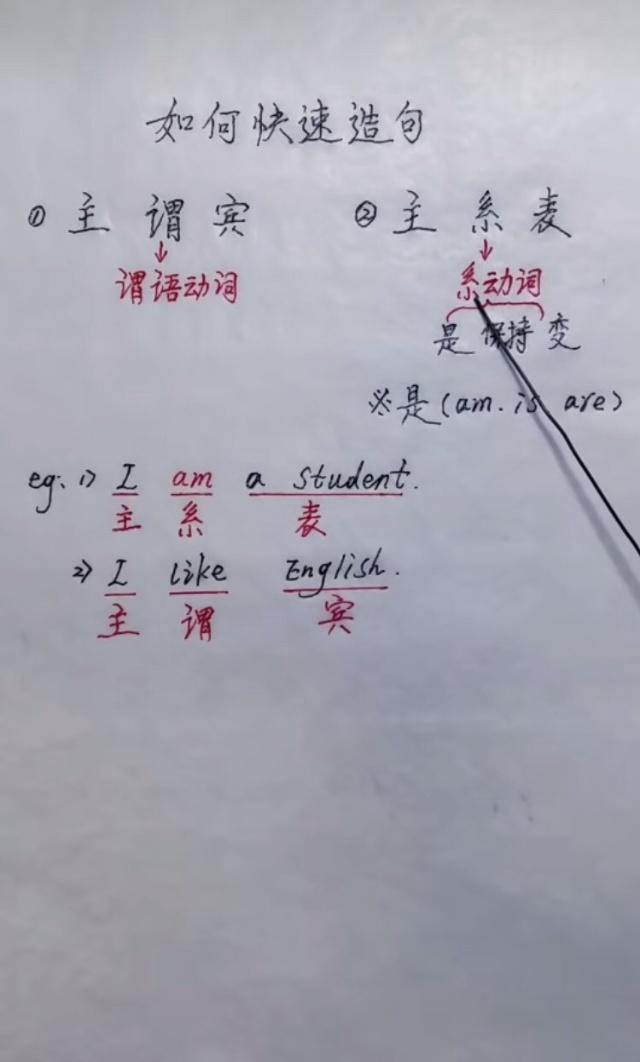 如何快速造句
① 主 谓 宾 ② 主 系 表
谓语动词 系动词
是 保持 变
※是(am. is are)
eg: 1) I am a student.
主 系 表
2) I like English.
主 谓 宾